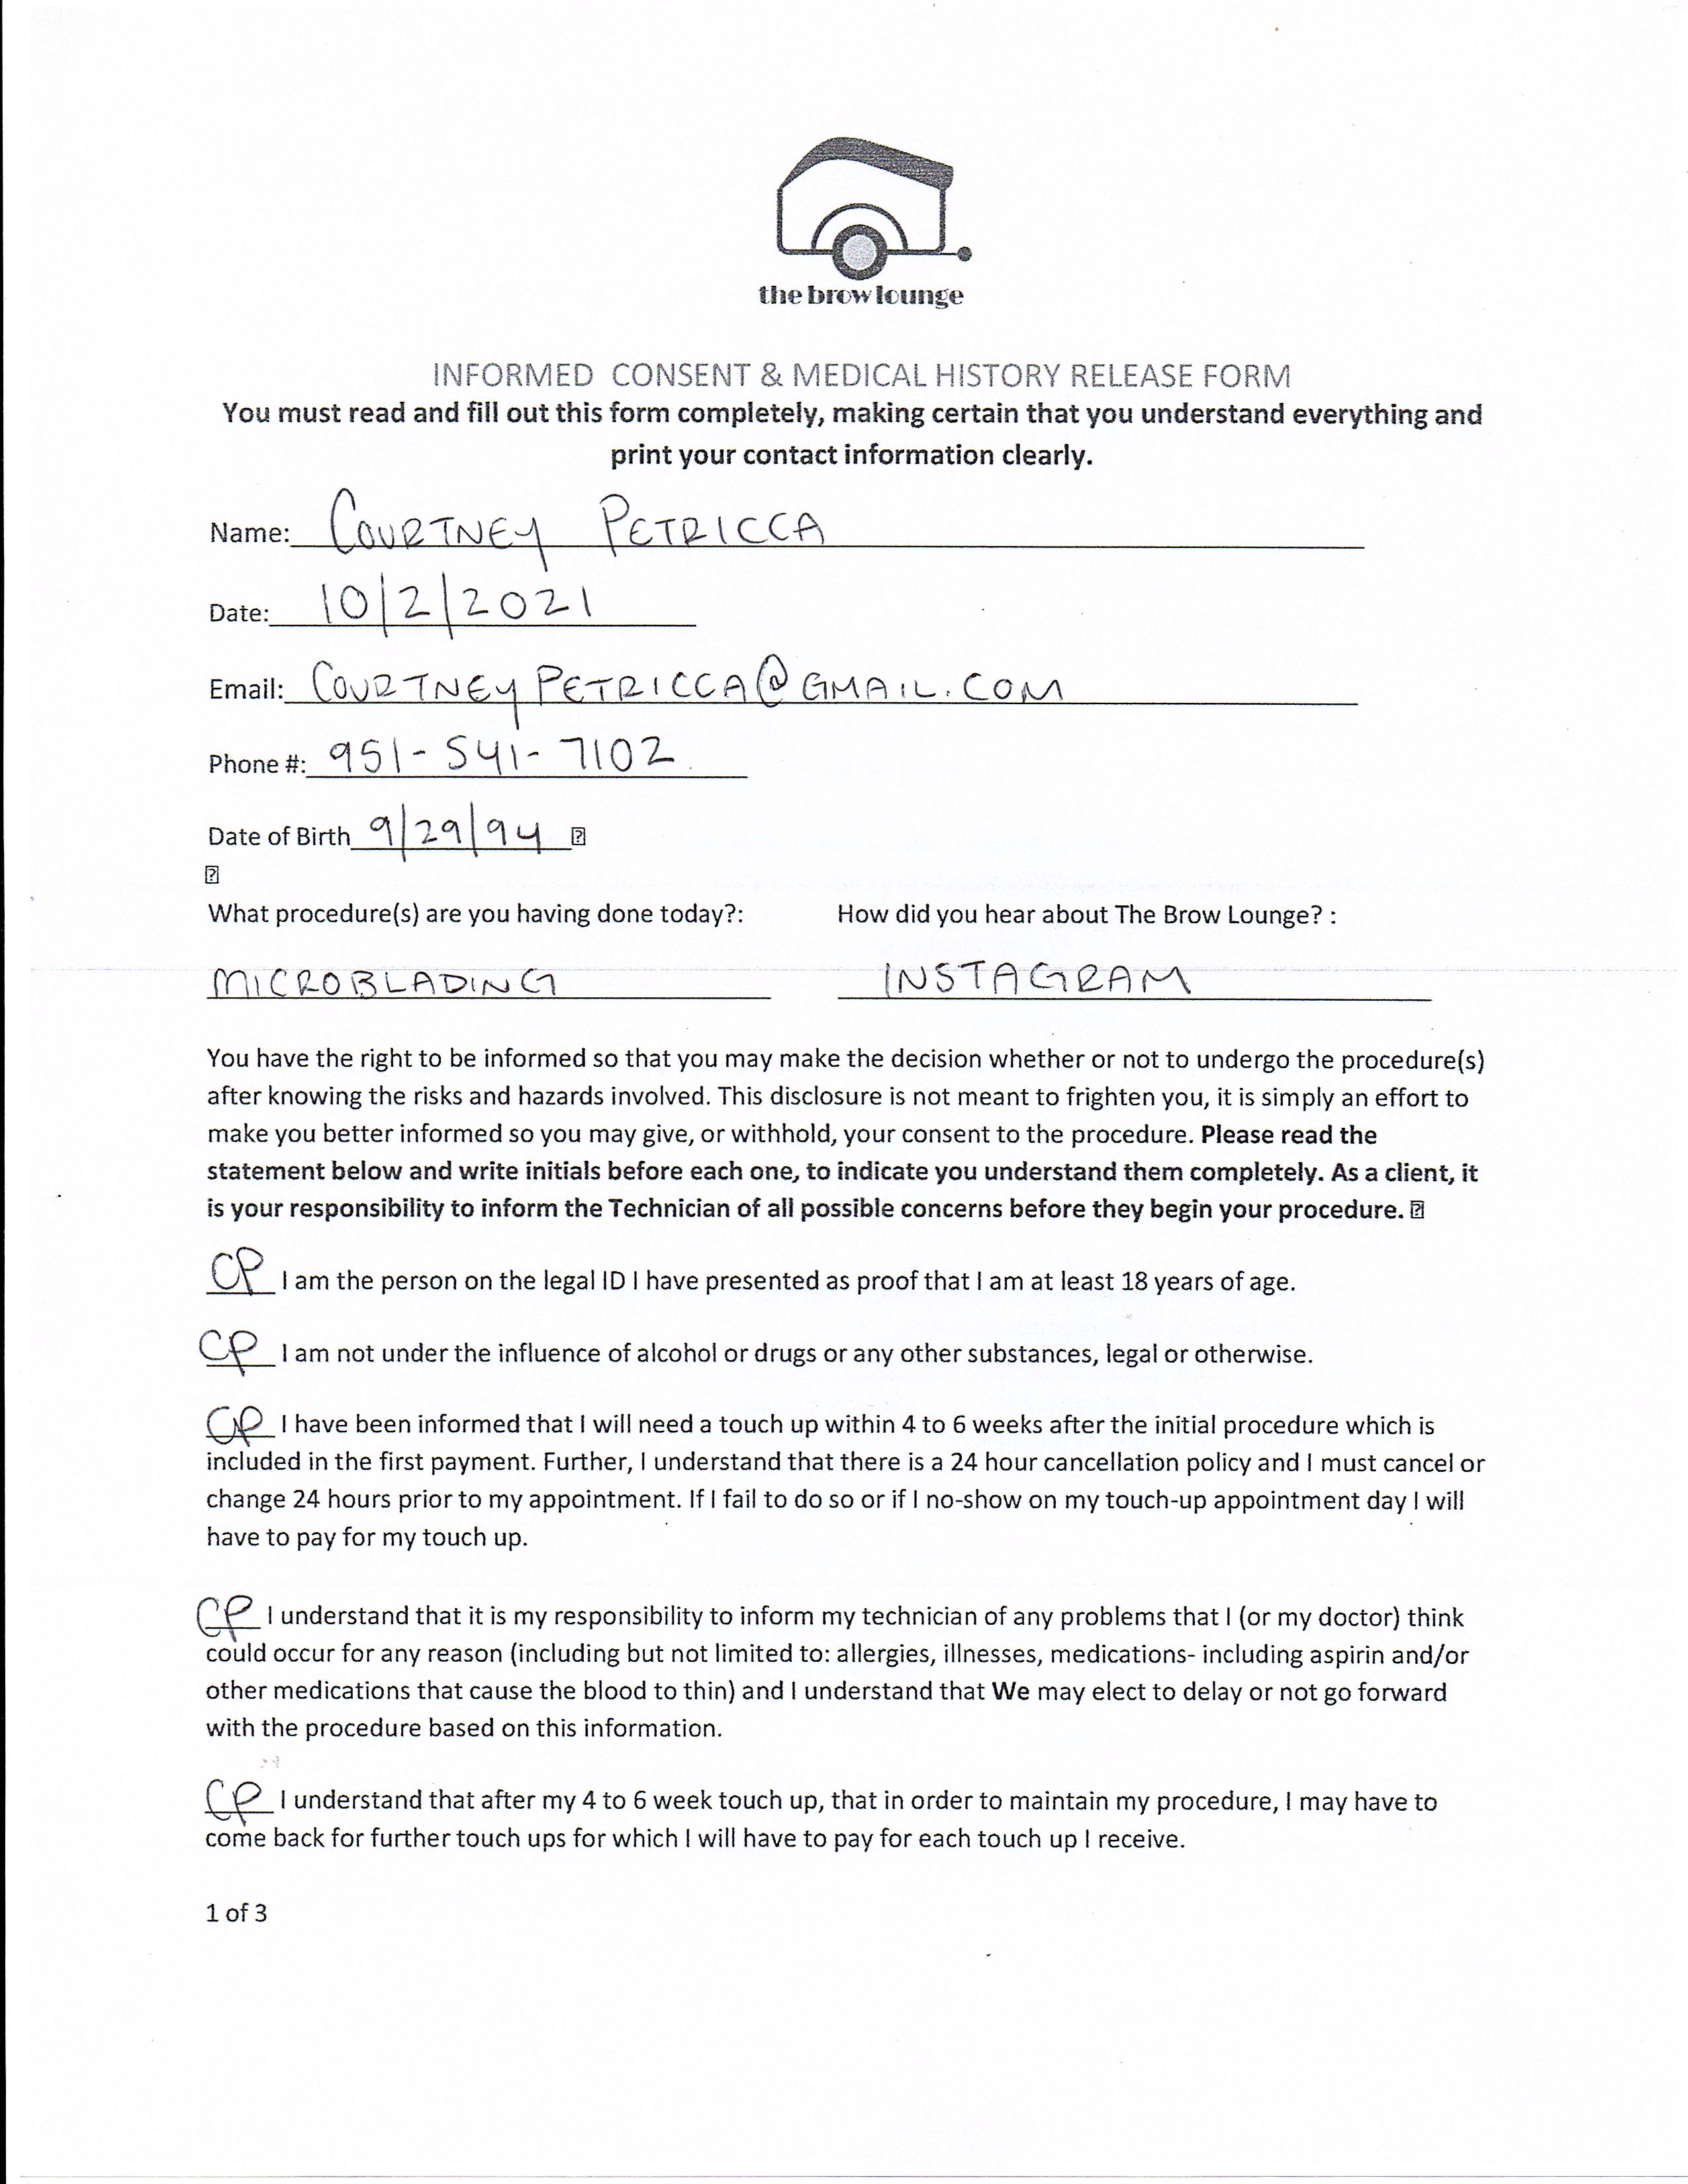 the brow lounge
INFORMED CONSENT & MEDICAL HISTORY RELEASE FORM
You must read and fill out this form completely, making certain that you understand everything and
print your contact information clearly.
Name: COURTNEY PETRICCA
Date: 10/2/2021
Email: COURTNEYPETRICCA@GMAIL.COM
Phone #: 951-541-7102
Date of Birth 9/29/94 ?
?
What procedure(s) are you having done today?: How did you hear about The Brow Lounge? :
MICROBLADING INSTAGRAM
You have the right to be informed so that you may make the decision whether or not to undergo the procedure(s)
after knowing the risks and hazards involved. This disclosure is not meant to frighten you, it is simply an effort to
make you better informed so you may give, or withhold, your consent to the procedure. Please read the
statement below and write initials before each one, to indicate you understand them completely. As a client, it
is your responsibility to inform the Technician of all possible concerns before they begin your procedure. ?
CP I am the person on the legal ID I have presented as proof that I am at least 18 years of age.
CP I am not under the influence of alcohol or drugs or any other substances, legal or otherwise.
CP I have been informed that I will need a touch up within 4 to 6 weeks after the initial procedure which is
included in the first payment. Further, I understand that there is a 24 hour cancellation policy and I must cancel or
change 24 hours prior to my appointment. If I fail to do so or if I no-show on my touch-up appointment day I will
have to pay for my touch up.
CP I understand that it is my responsibility to inform my technician of any problems that I (or my doctor) think
could occur for any reason (including but not limited to: allergies, illnesses, medications- including aspirin and/or
other medications that cause the blood to thin) and I understand that We may elect to delay or not go forward
with the procedure based on this information.
CP I understand that after my 4 to 6 week touch up, that in order to maintain my procedure, I may have to
come back for further touch ups for which I will have to pay for each touch up I receive.
1 of 3